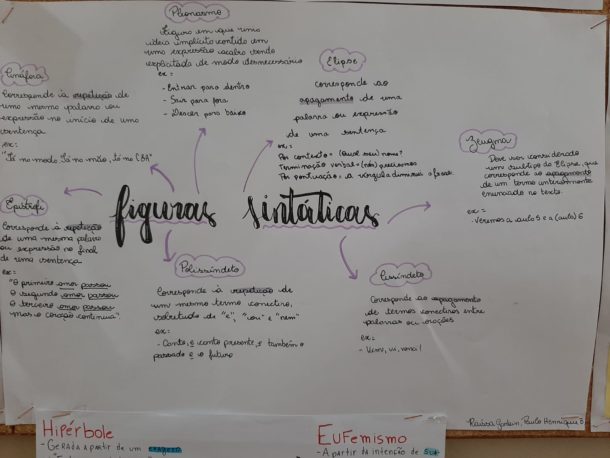 Pleonasmo
Figura em que uma
ideia implícita contida em
uma expressão acaba sendo
explicitada de modo desnecessário
ex:
- Entrar para dentro
- Sair para fora
- Descer para baixo
Elipse
Corresponde ao
apagamento de uma
palavra ou expressão
de uma sentença
ex:
Por contexto = (Qual seu) nome?
Terminação verbal = (nós) precisamos
Por pontuação = a vírgula a frase
Anáfora
Corresponde à repetição de
uma mesma palavra ou
expressão no início de uma
sentença.
ex:
"Tá na moda, Tá na mão, tá na C&A"
Zeugma
Deve ser considerado
um subtipo de Elipse, que
corresponde ao apagamento
de um termo anteriormente
enunciado no texto.
ex:
- Veremos a aula 5 e a (aula) 6
figuras sintáticas
Epístrofe
Corresponde à repetição
de uma mesma palavra
ou expressão no final
de uma sentença.
ex:
"O primeiro amor passou
o segundo amor passou
o terceiro amor passou
mas o coração continua".
Polissíndeto
Corresponde à repetição de
um mesmo termo conectivo,
sobretudo de "e", "ou" e "nem"
ex:
- Canto, e canto presente, e também o
passado e o futuro
Assíndeto
Corresponde ao apagamento
de termos conectivos entre
palavras ou orações
ex:
- Vim, vi, venci!
Paulo Henrique
Hipérbole
- GERADA A PARTIR DE UM
EUFEMISMO
- A PARTIR DA INTENÇÃO DE